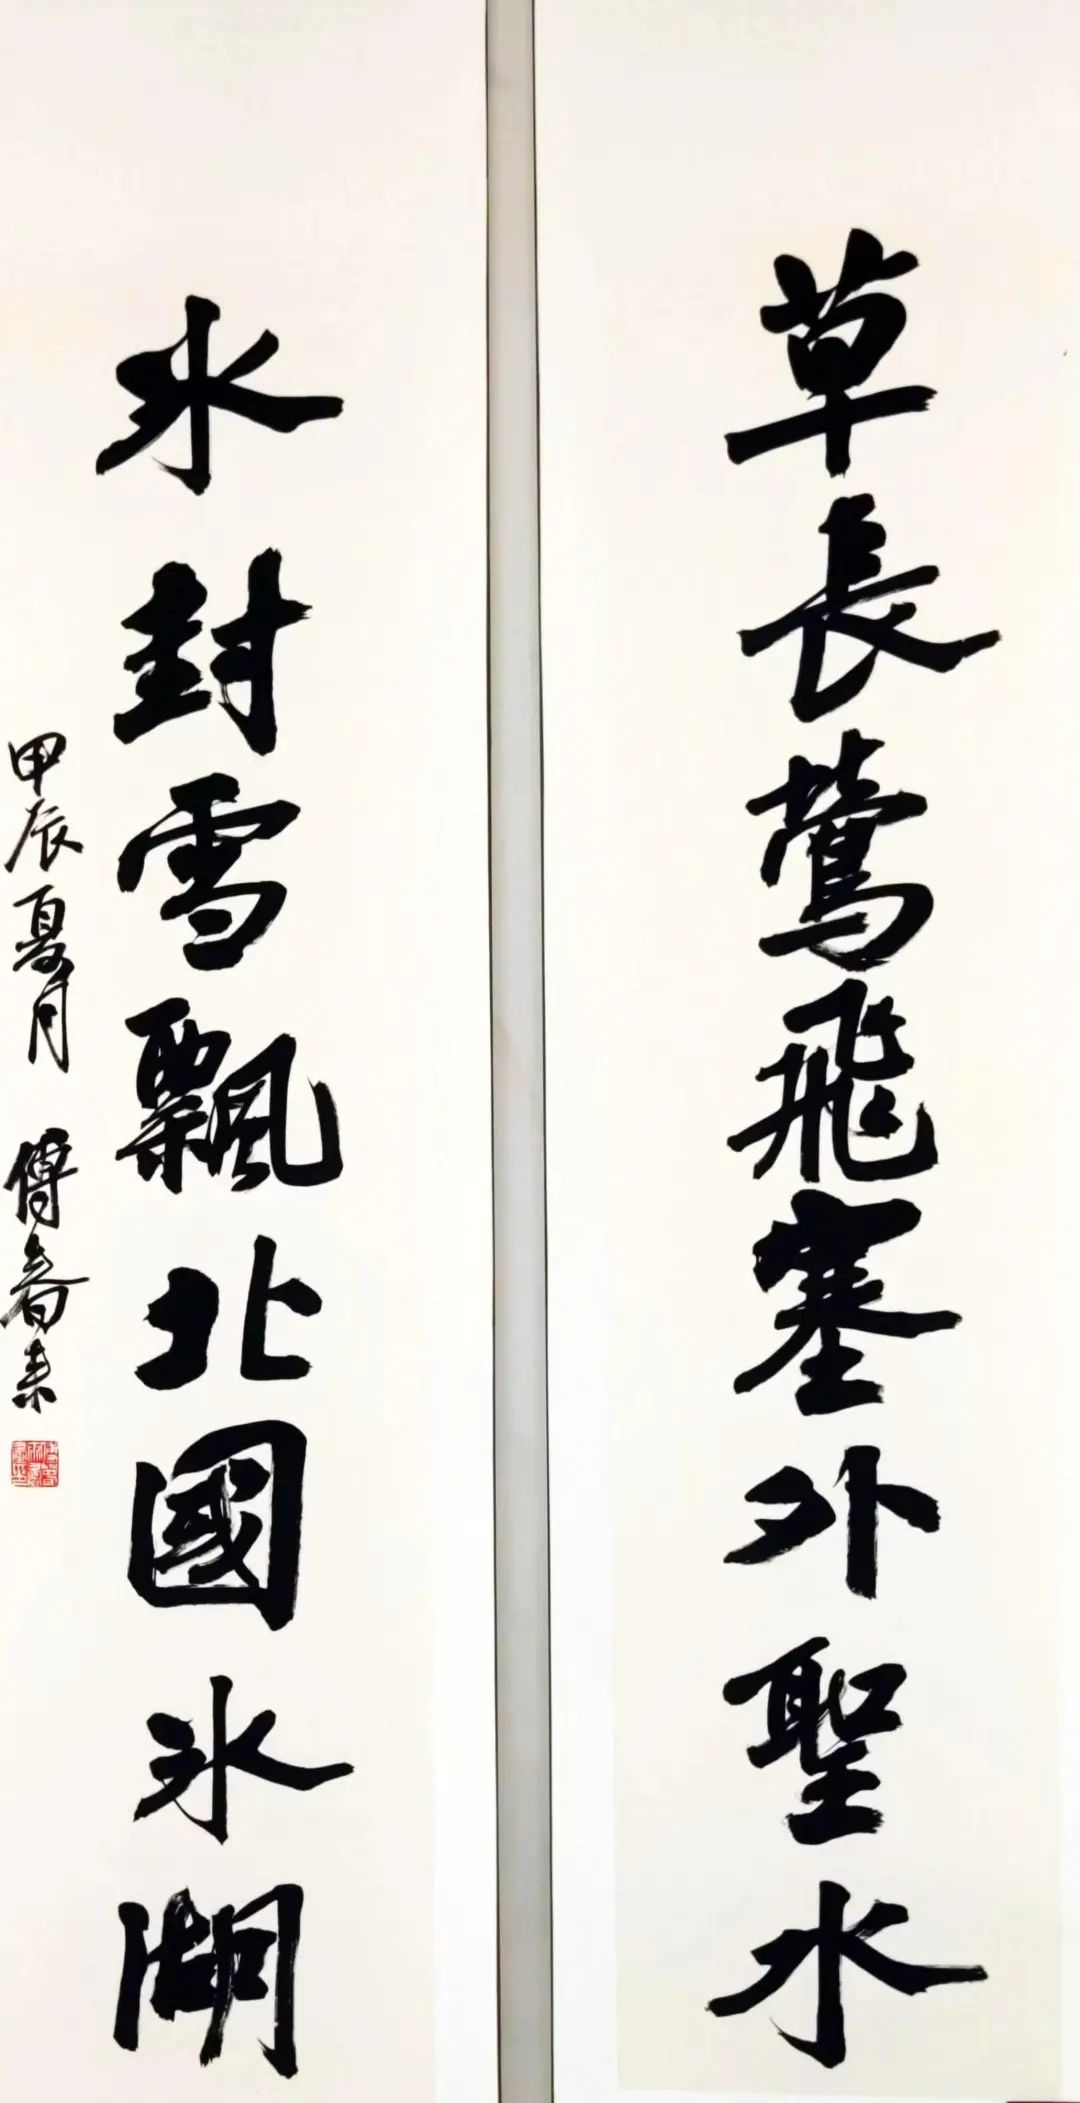 草長鶯飛塞外聖水
冰封雪飄北國冰湖
甲辰夏月 傅春秉